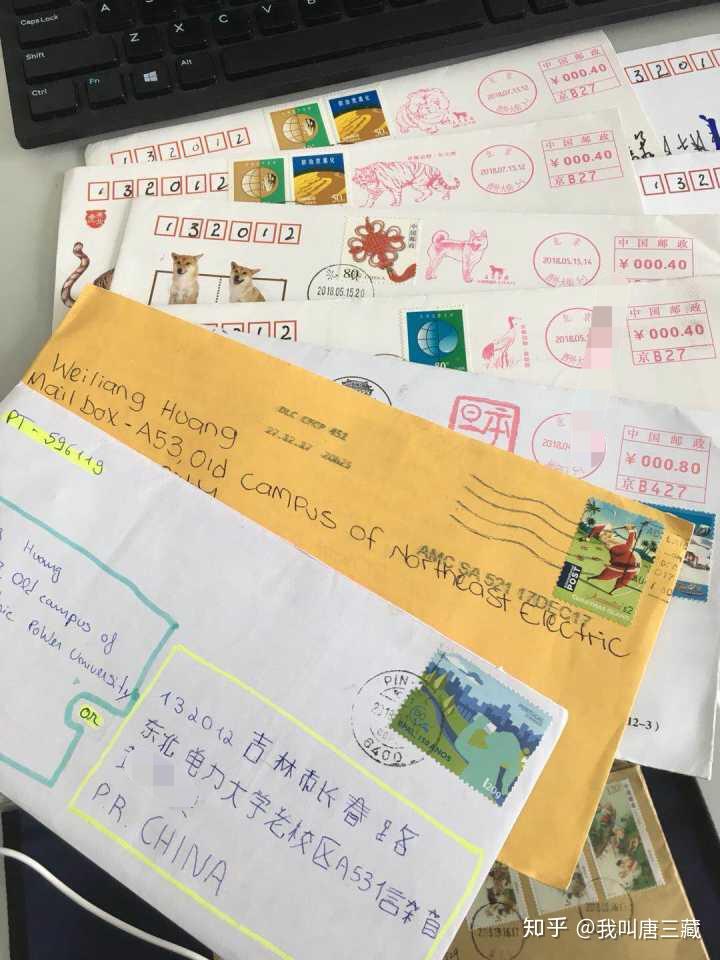 CapsLock
A
Shift
Z
X
C
V
B
N
M
Ctrl
Fn
Alt
132012
50
2018.07.13.12
中国邮政
¥000.40
京B27
3201
132012
50
2018.07.13.12
中国邮政
¥000.40
京B27
132
132012
中国邮政
80
2018.05.15.20
2018.05.15,14
中国邮政
¥000.40
京B27
312
80
2018.05
中国邮政
¥000.40
京B27
日本
中国邮政
¥000.80
京B427
Weiliang Huang
Mailbox-A53,Old Campus of Northeast Electric
DLC CSCP 451
27.12.17 20h25
AMC SA 521 17DEC17
POST
CHRISTMAS ISLAND
$2
12-3)
PT-596119
Huang
Old campus of
Power University
or
PIN
6400
RNAL 150 ANOS
120g
132012 吉林市长春路
东北电力大学老校区A53信箱
P.R. CHINA
知乎 @我叫唐三藏